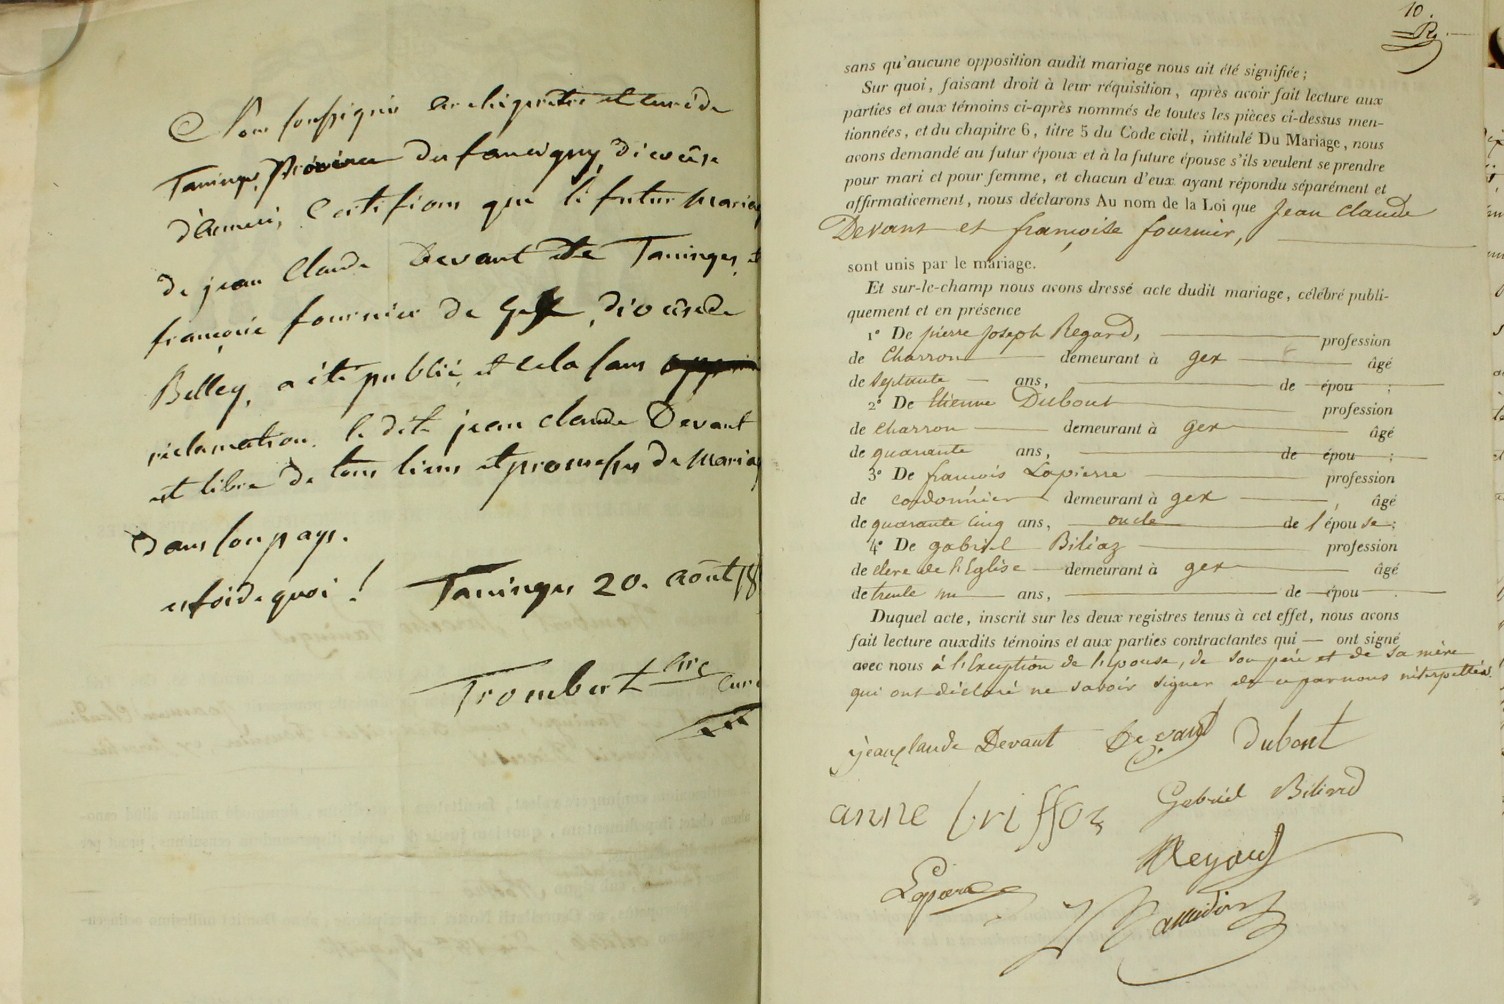 Nous soussigné archiprêtre et curé de
Taninges, Province du faucigny, diocèse
d'anneci, Certifions que le futur Maria
de jean Claude Devant de Taninges, et
françoise fournier de Gex, diocèse de
Belley, a été publié, et cela sans oppo
réclamation. le dit jean claude Devant
est libre de tous liens et promesses de Maria
dans son pays.
en foi de quoi ! Taninges 20. août 18
Trombert curé
10.
sans qu'aucune opposition audit mariage nous ait été signifiée ;
Sur quoi, faisant droit à leur réquisition, après avoir fait lecture aux
parties et aux témoins ci-après nommés de toutes les pièces ci-dessus men-
tionnées, et du chapitre 6, titre 5 du Code civil, intitulé Du Mariage, nous
avons demandé au futur époux et à la future épouse s'ils veulent se prendre
pour mari et pour femme, et chacun d'eux ayant répondu séparément et
affirmativement, nous déclarons Au nom de la Loi que Jean Claude
Devant et françoise fournier,
sont unis par le mariage.
Et sur-le-champ nous avons dressé acte dudit mariage, célébré publi-
quement et en présence
1° De pierre joseph Regard, profession
de Charron demeurant à gex âgé
de septante ans, de épou ;
2° De Etienne Dubout profession
de charron demeurant à gex âgé
de quarante ans, de épou ;
3° De françois Lapierre profession
de cordonnier demeurant à gex, âgé
de quarante cinq ans, oncle de l'épouse ;
4° De gabriel Biliaz profession
de clerc de l'Eglise demeurant à gex âgé
de trente un ans, de épou .
Duquel acte, inscrit sur les deux registres tenus à cet effet, nous avons
fait lecture auxdits témoins et aux parties contractantes qui — ont signé
avec nous à l'Exception de l'épouse, de son père et de sa mère
qui ont déclaré ne savoir signer de ce par nous interpellés.
jean claude Devant Devant Dubout
anne Griffoz Gabriel Biliard
Regard
Lapierre